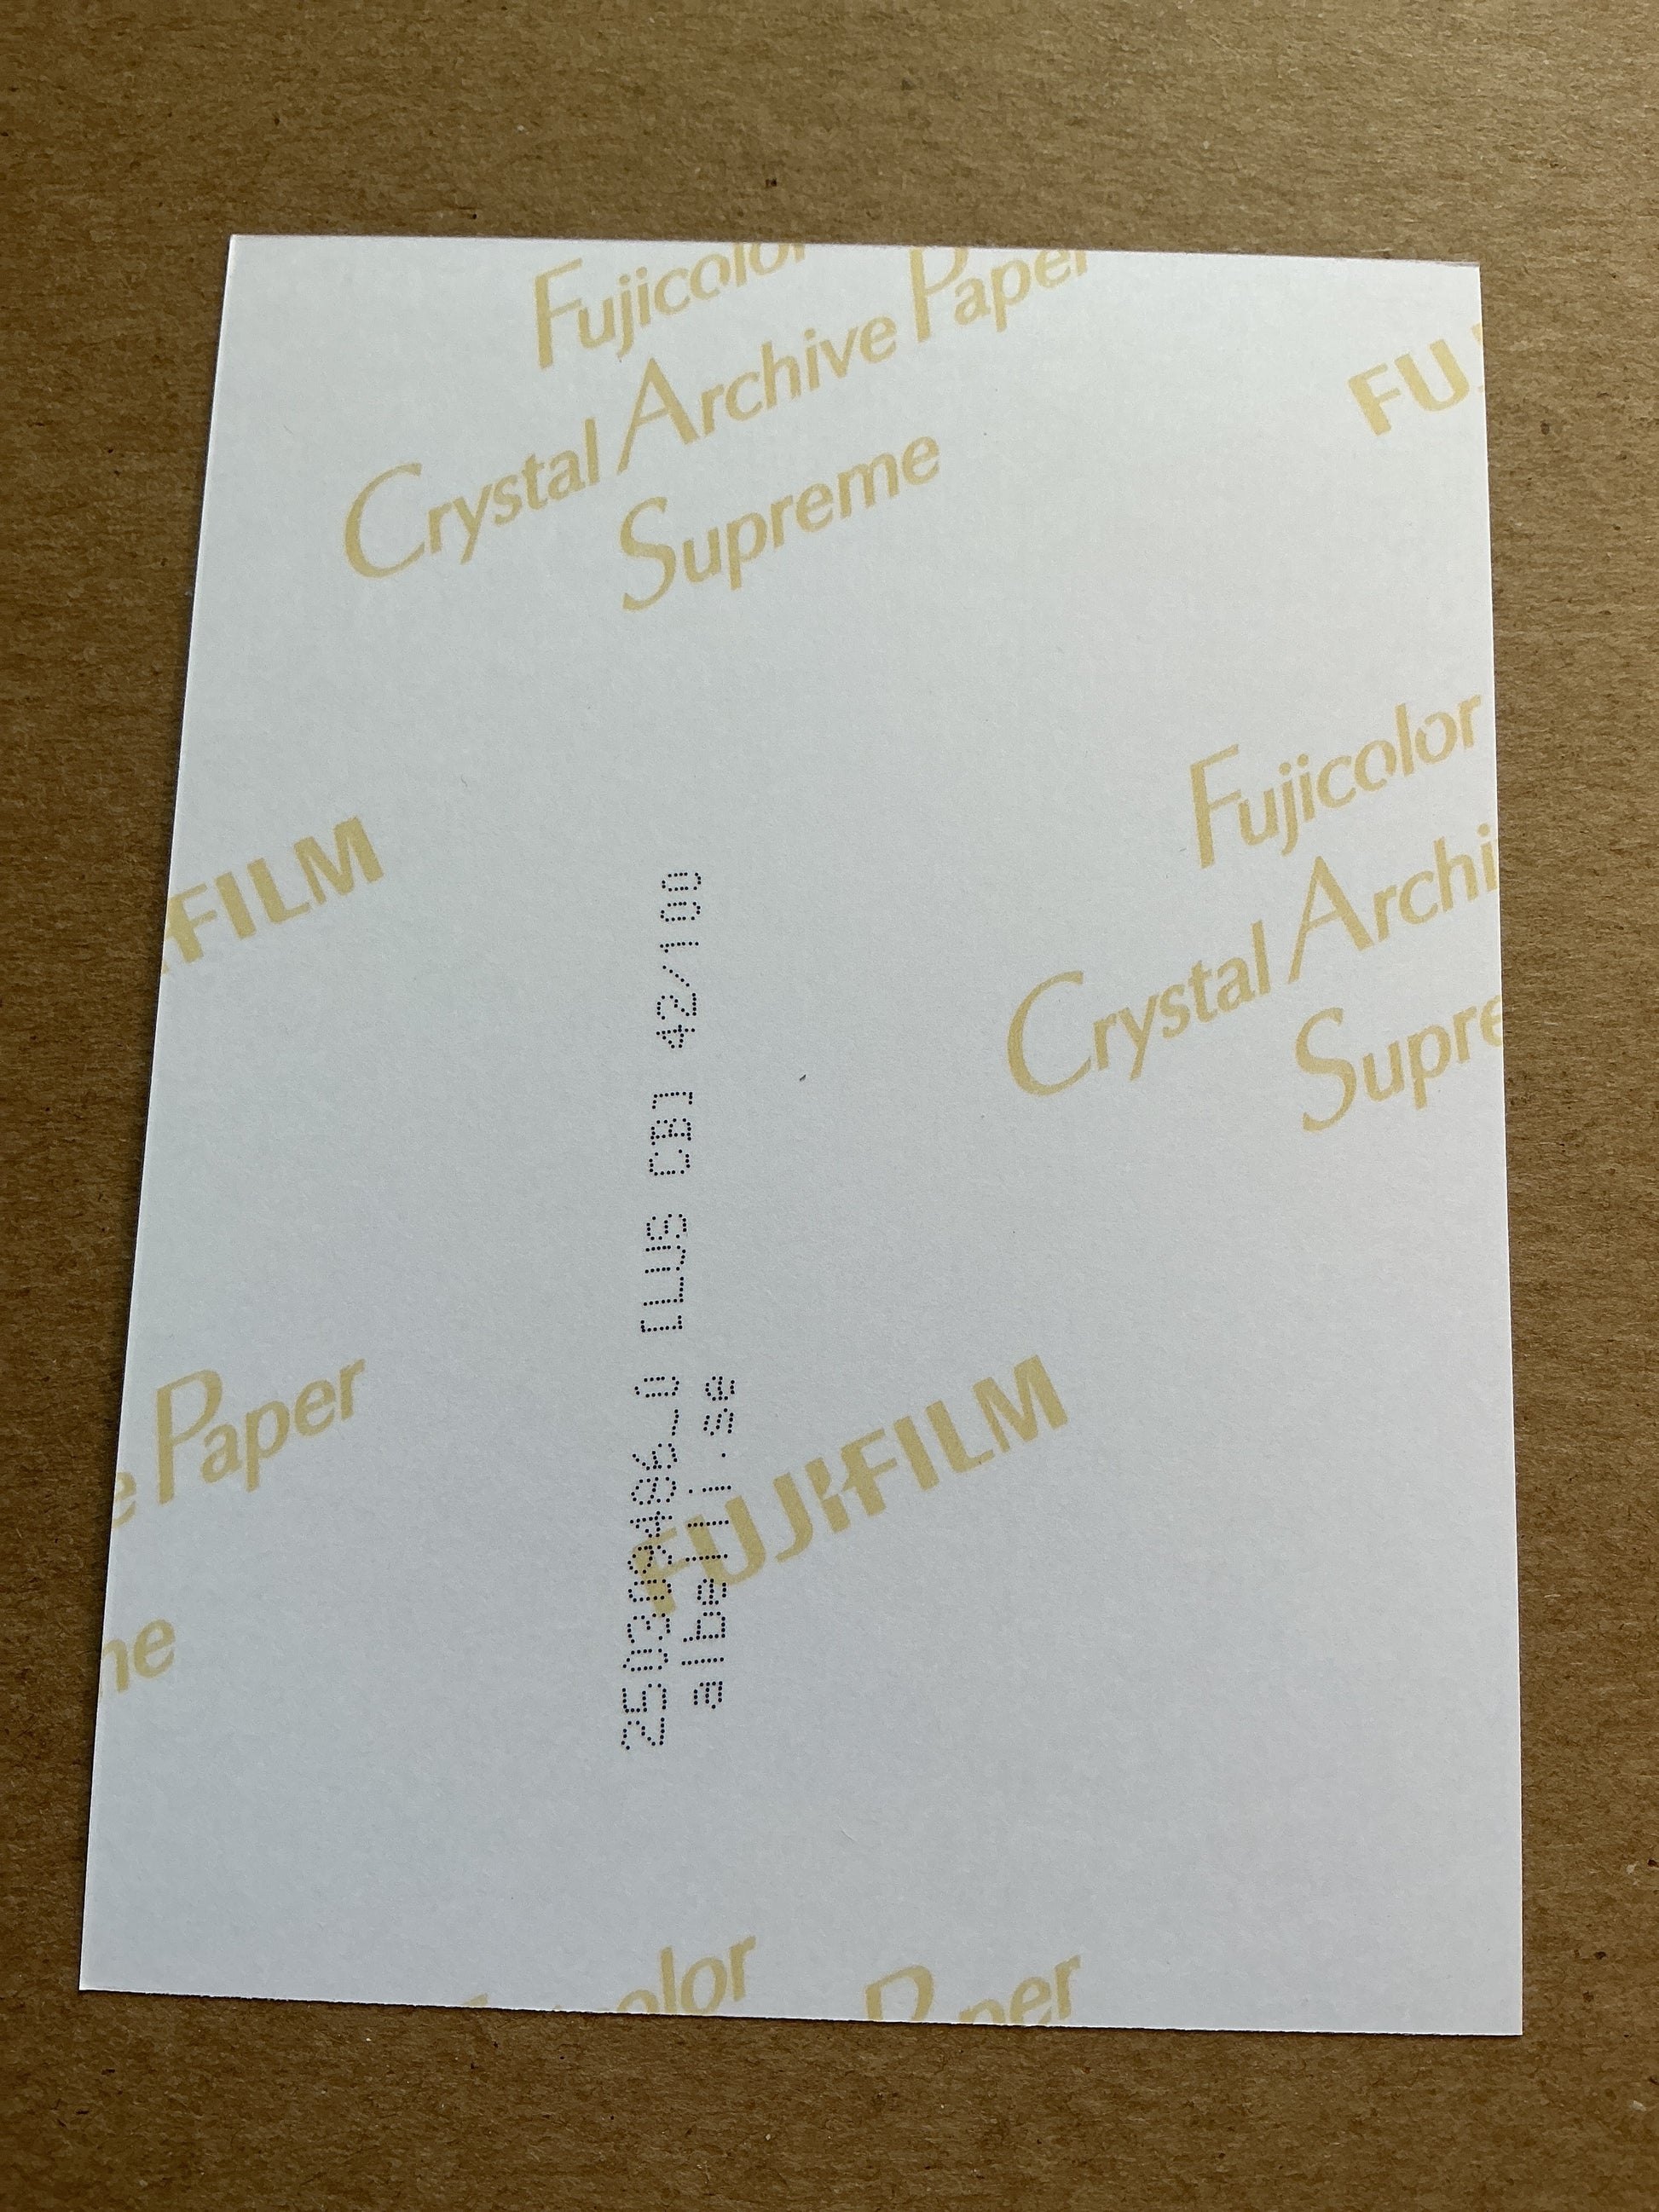 Fujicolor
Crystal Archive Paper
Supreme
FUJ
FILM
Fujicolor
Crystal Archi
Supre
25D309486_0 CLUS CB1 42/100
albelli.se
FUJIFILM
e Paper
me
color
Paper